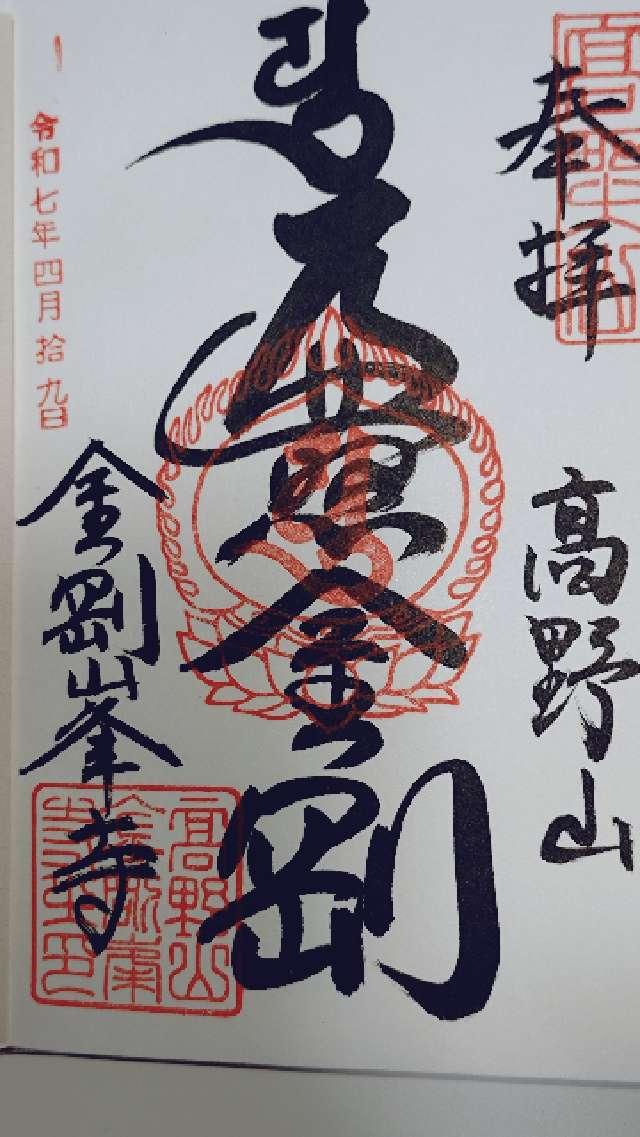 奉拝
高野山
遍照金剛
金剛峯寺
令和七年四月拾九日
高野山